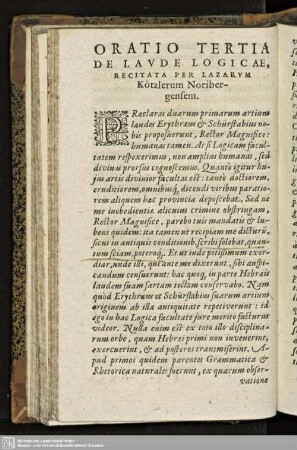 ORATIO TERTIA
DE LAVDE LOGICAE,
RECITATA PER LAZARVM
Kötzlerum Noriber-
gensem.
PRaeclarae duarum primarum artium
laudes Erythraeus & Schürstabius no-
bis proposuerunt, Rector Magnifice:
humanas tamen. At si Logicam facul-
tatem respexerimus, non amplius humanas, sed
divinas prorsus cognoscemus. Quantò igitur hu-
jus artis divinior facultas est: tantò doctiorem,
eruditiorem, omnibusq́ dicendi viribus paratio-
rem aliquem haec provincia deposcebat. Sed ne
me inobedientis alicuius crimine obstringam,
Rector Magnifice, parebo tuis mandatis & lu-
bens quidem: ita tamen ut recipiam me dicturū,
sicut in antiquis conditionib. scribi solebat, quan-
tum sciam, poteroq́. Et ut inde potissimum exor-
diar, unde illi, qui ante me dixerunt, sibi auspi-
candum censuerunt: hac quoq́ in parte Hebraeis
laudem suam sartam tectam conservabo. Nam
quòd Erythraeus & Schürstabius suarum artium
originem ab illa antiquitate repetiverunt: id
ego in hac Logica facultate jure merito facturus
videor. Nulla enim est ex toto illo disciplina-
rum orbe, quam Hebraei primi non invenerint,
exercuerint, & ad posteros transmiserint. A-
pud primos quidem parentes Grammatica &
Rhetorica naturales fuerunt, ex quarum obser-
vatione